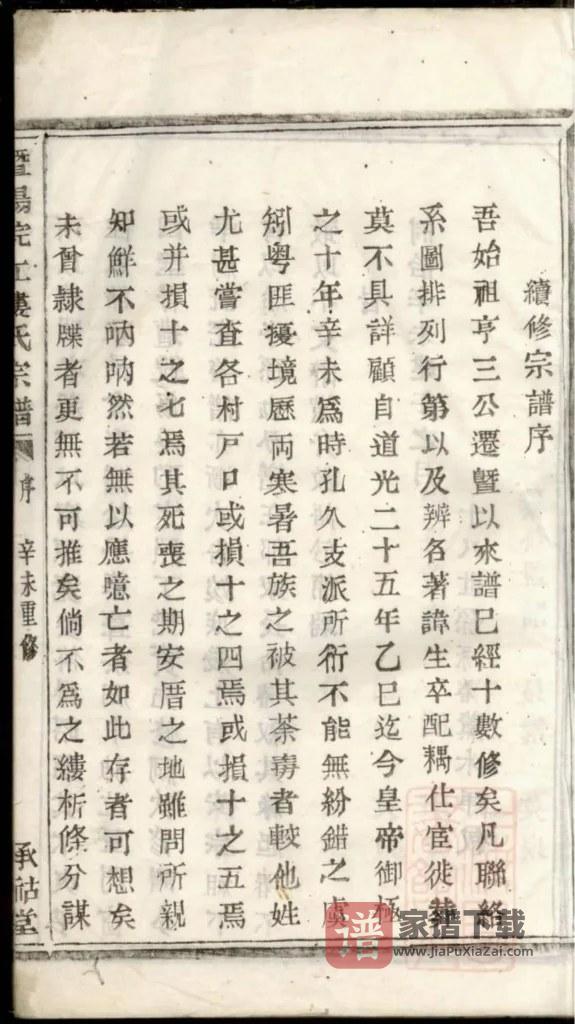 續修宗譜序
吾始祖亨三公遷暨以來譜已經十數修矣凡聯絡
系圖排列行第以及辨名著諱生卒配耦仕宦徙葬
莫不具詳顧自道光二十五年乙巳迄今皇帝御極
之十年辛未為時孔久支派所衍不能無紛錯之虞
矧粤匪擾境歷両寒暑吾族之被其荼毒者較他姓
尤甚嘗查各村戸口或損十之四焉或損十之五焉
或并損十之七焉其死喪之期安厝之地雖問所親
知鮮不吶吶然若無以應噫亡者如此存者可想矣
未曾隷牒者更無不可推矣倘不為之縷析條分謀
暨陽浣江婁氏宗譜 序 辛未重修 承祜堂
譜 家谱下载
www.JiaPuXiaZai.com